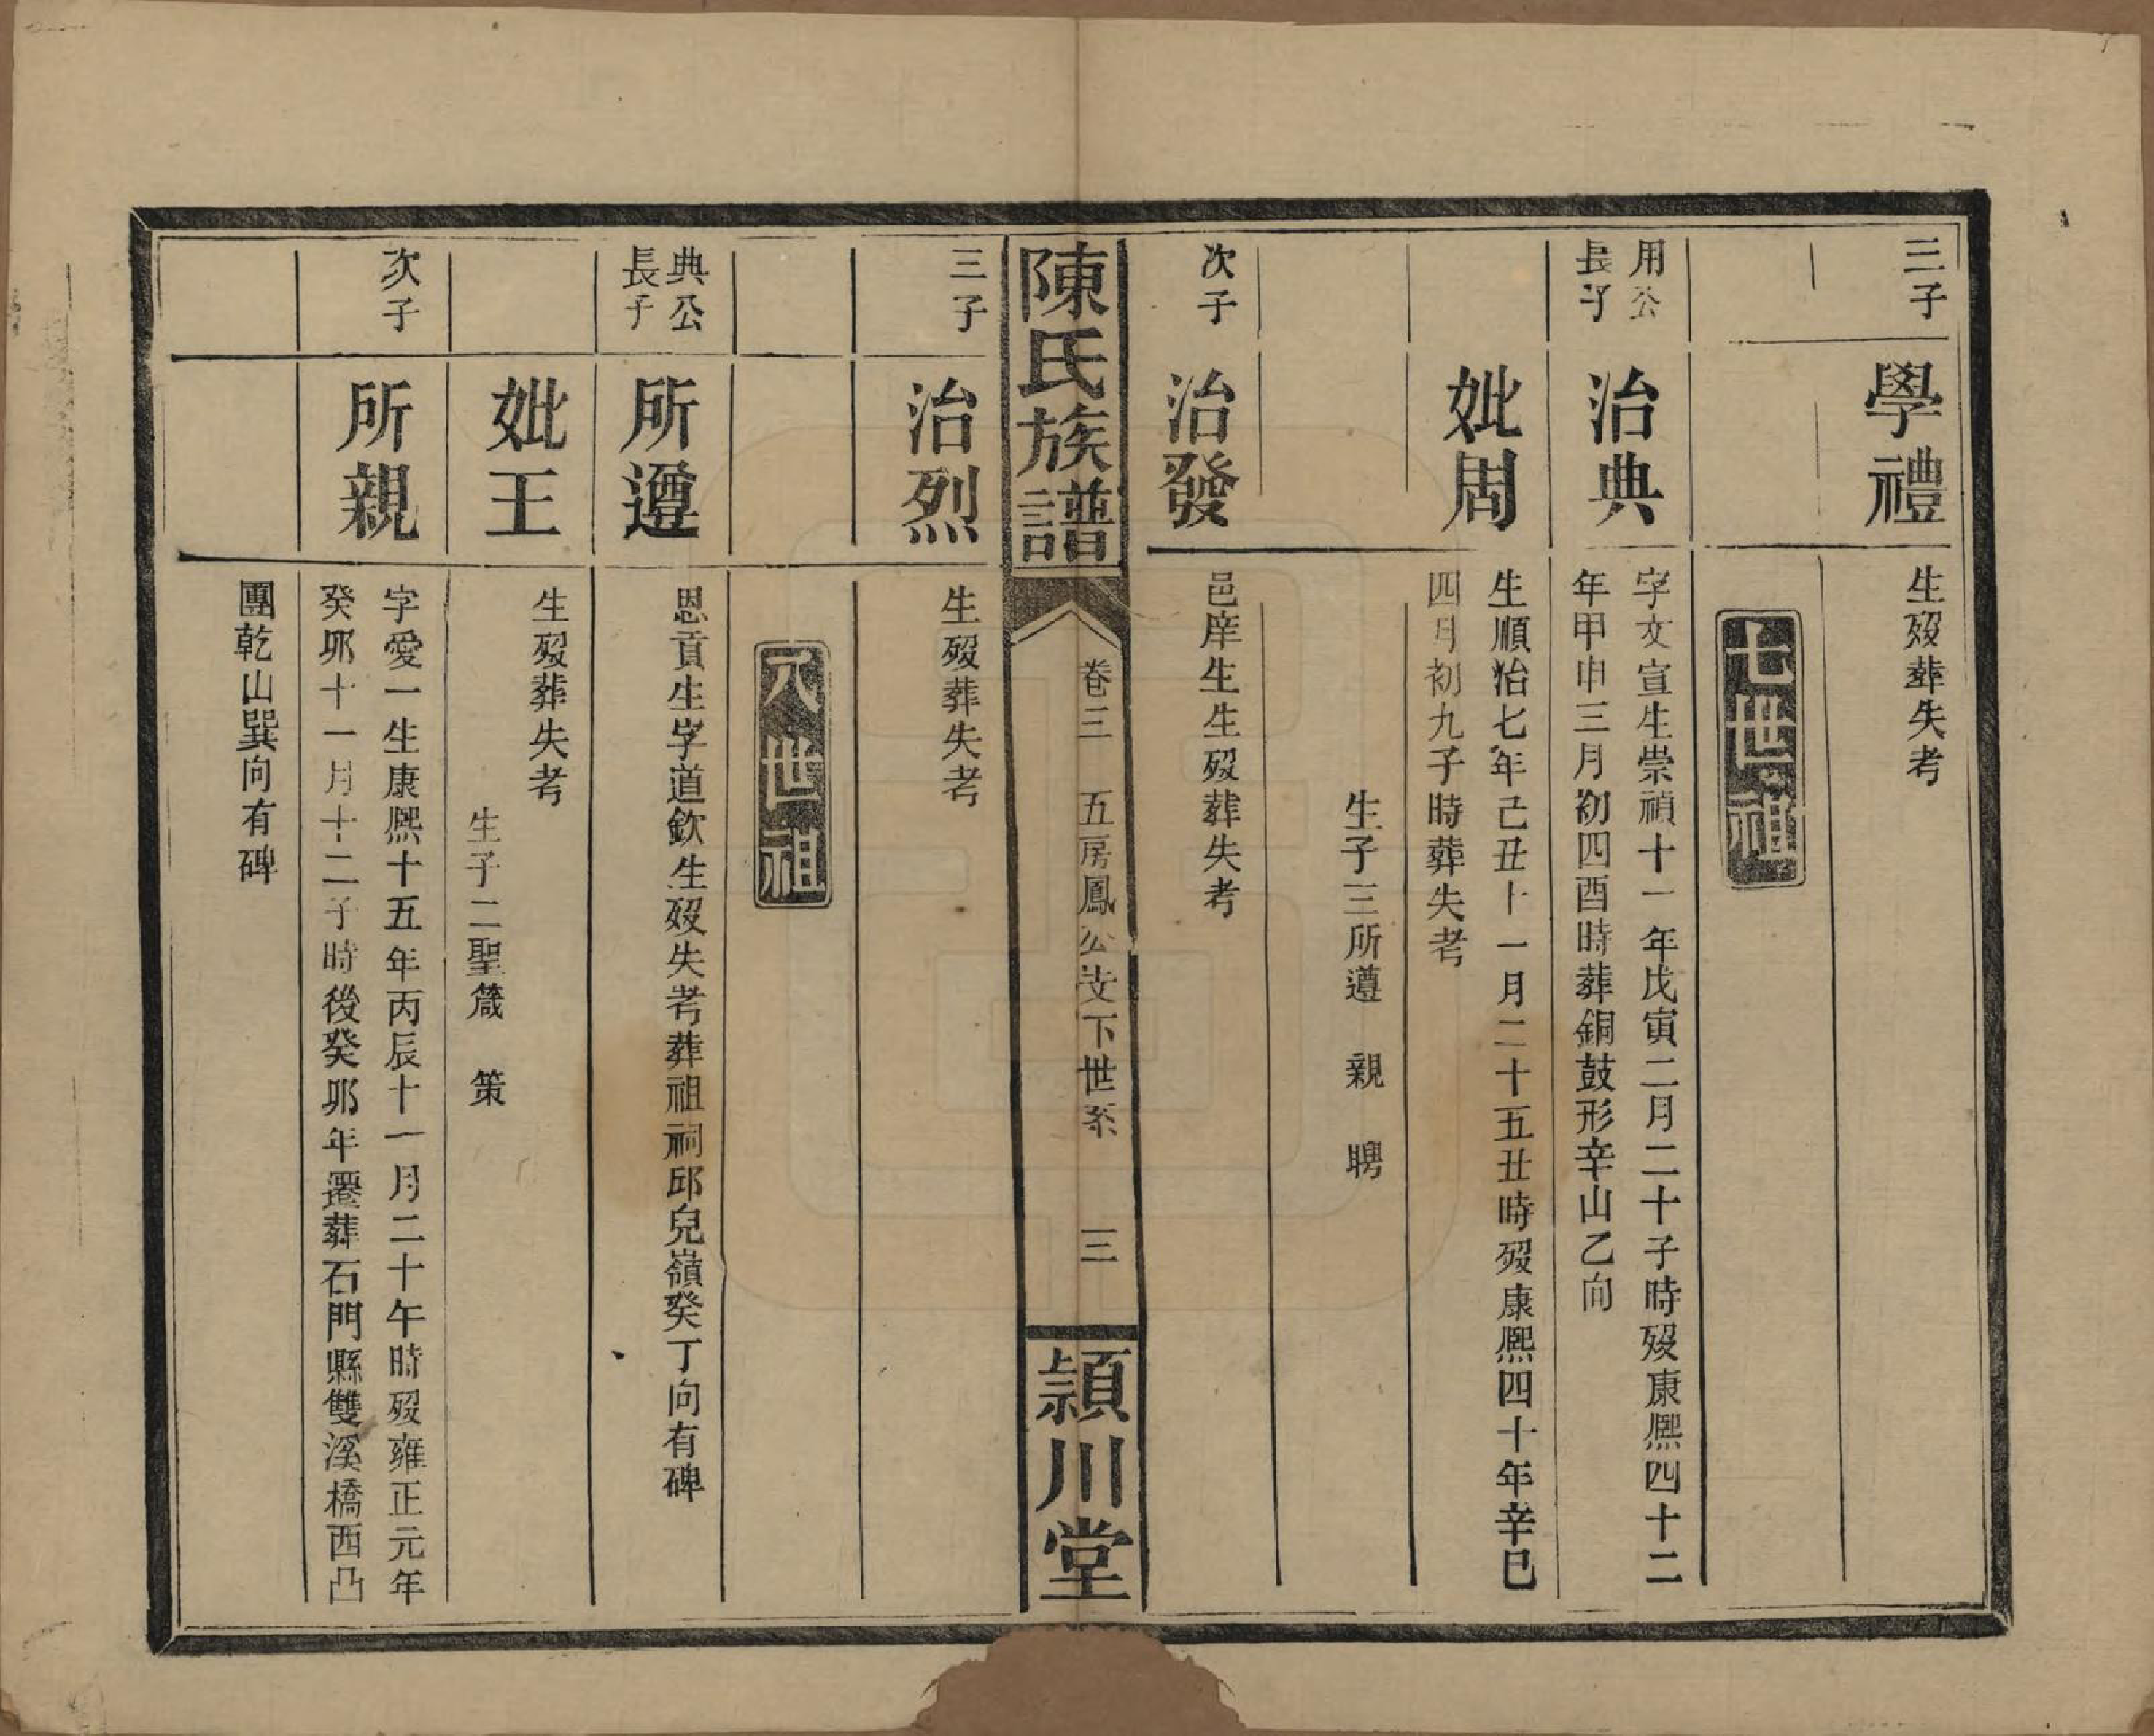 三子
學禮
生歿葬失考
七世祖
用公
長子
治典
字文宣生崇禎十一年戊寅二月二十子時歿康熙四十二
年甲申三月初四酉時葬銅鼓形辛山乙向
妣周
生順治七年己丑十一月二十五丑時歿康熙四十年辛巳
四月初九子時葬失考
生子三所遵 親 聘
次子
治發
邑庠生生歿葬失考
陳氏族譜
卷三 五房鳳公支下世系 三
潁川堂
三子
治烈
生歿葬失考
八世祖
典公
長子
所遵
恩貢生字道欽生歿失考葬祖祠邱兒嶺癸丁向有碑
妣王
生歿葬失考
生子二聖箴 策
次子
所親
字愛一生康熙十五年丙辰十一月二十午時歿雍正元年
癸卯十一月十二子時後癸卯年遷葬石門縣雙溪橋西凸
團乾山巽向有碑